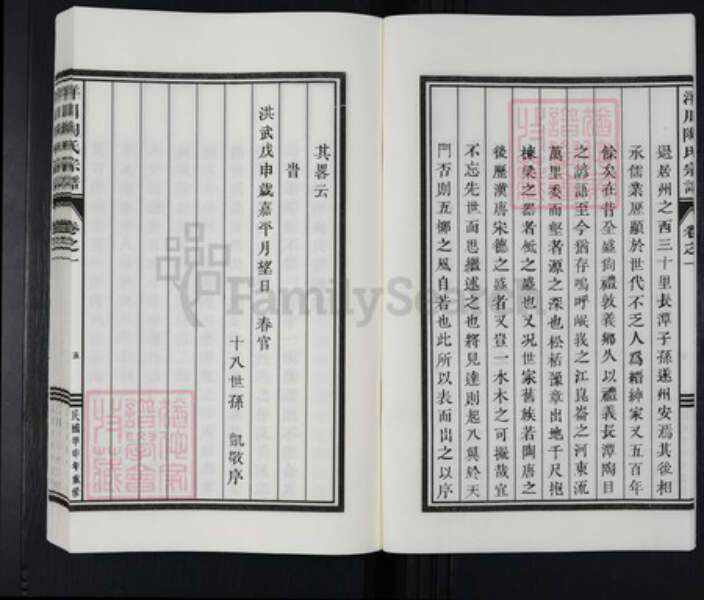 洋川陶氏宗譜
卷之一
過居州之西三十里長潭子孫遂州安焉其後相
承儒業歷顯於世代不乏人爲縉紳家又五百年
餘矣在昔全盛尚禮敦義鄉久以禮義長潭陶目
之諺語至今猶存嗚呼岷峩之江崑崙之河東流
萬里委而壑者源之深也松栢藻章出地千尺抱
棟梁之器者秪之盛也又况世家舊族若陶唐之
後歷漢唐宋德之盛者又豈一水木之可擬哉宜
不忘先世而思繼述之也將見達則起八與於天
門否則五柳之風自若也此所以表而出之以序
其畧云
旹
洪武戊申歲嘉平月望日 春官
十八世孫 凱敬序
洋川陶氏宗譜
卷之一
五
民國甲申年
FamilySearch